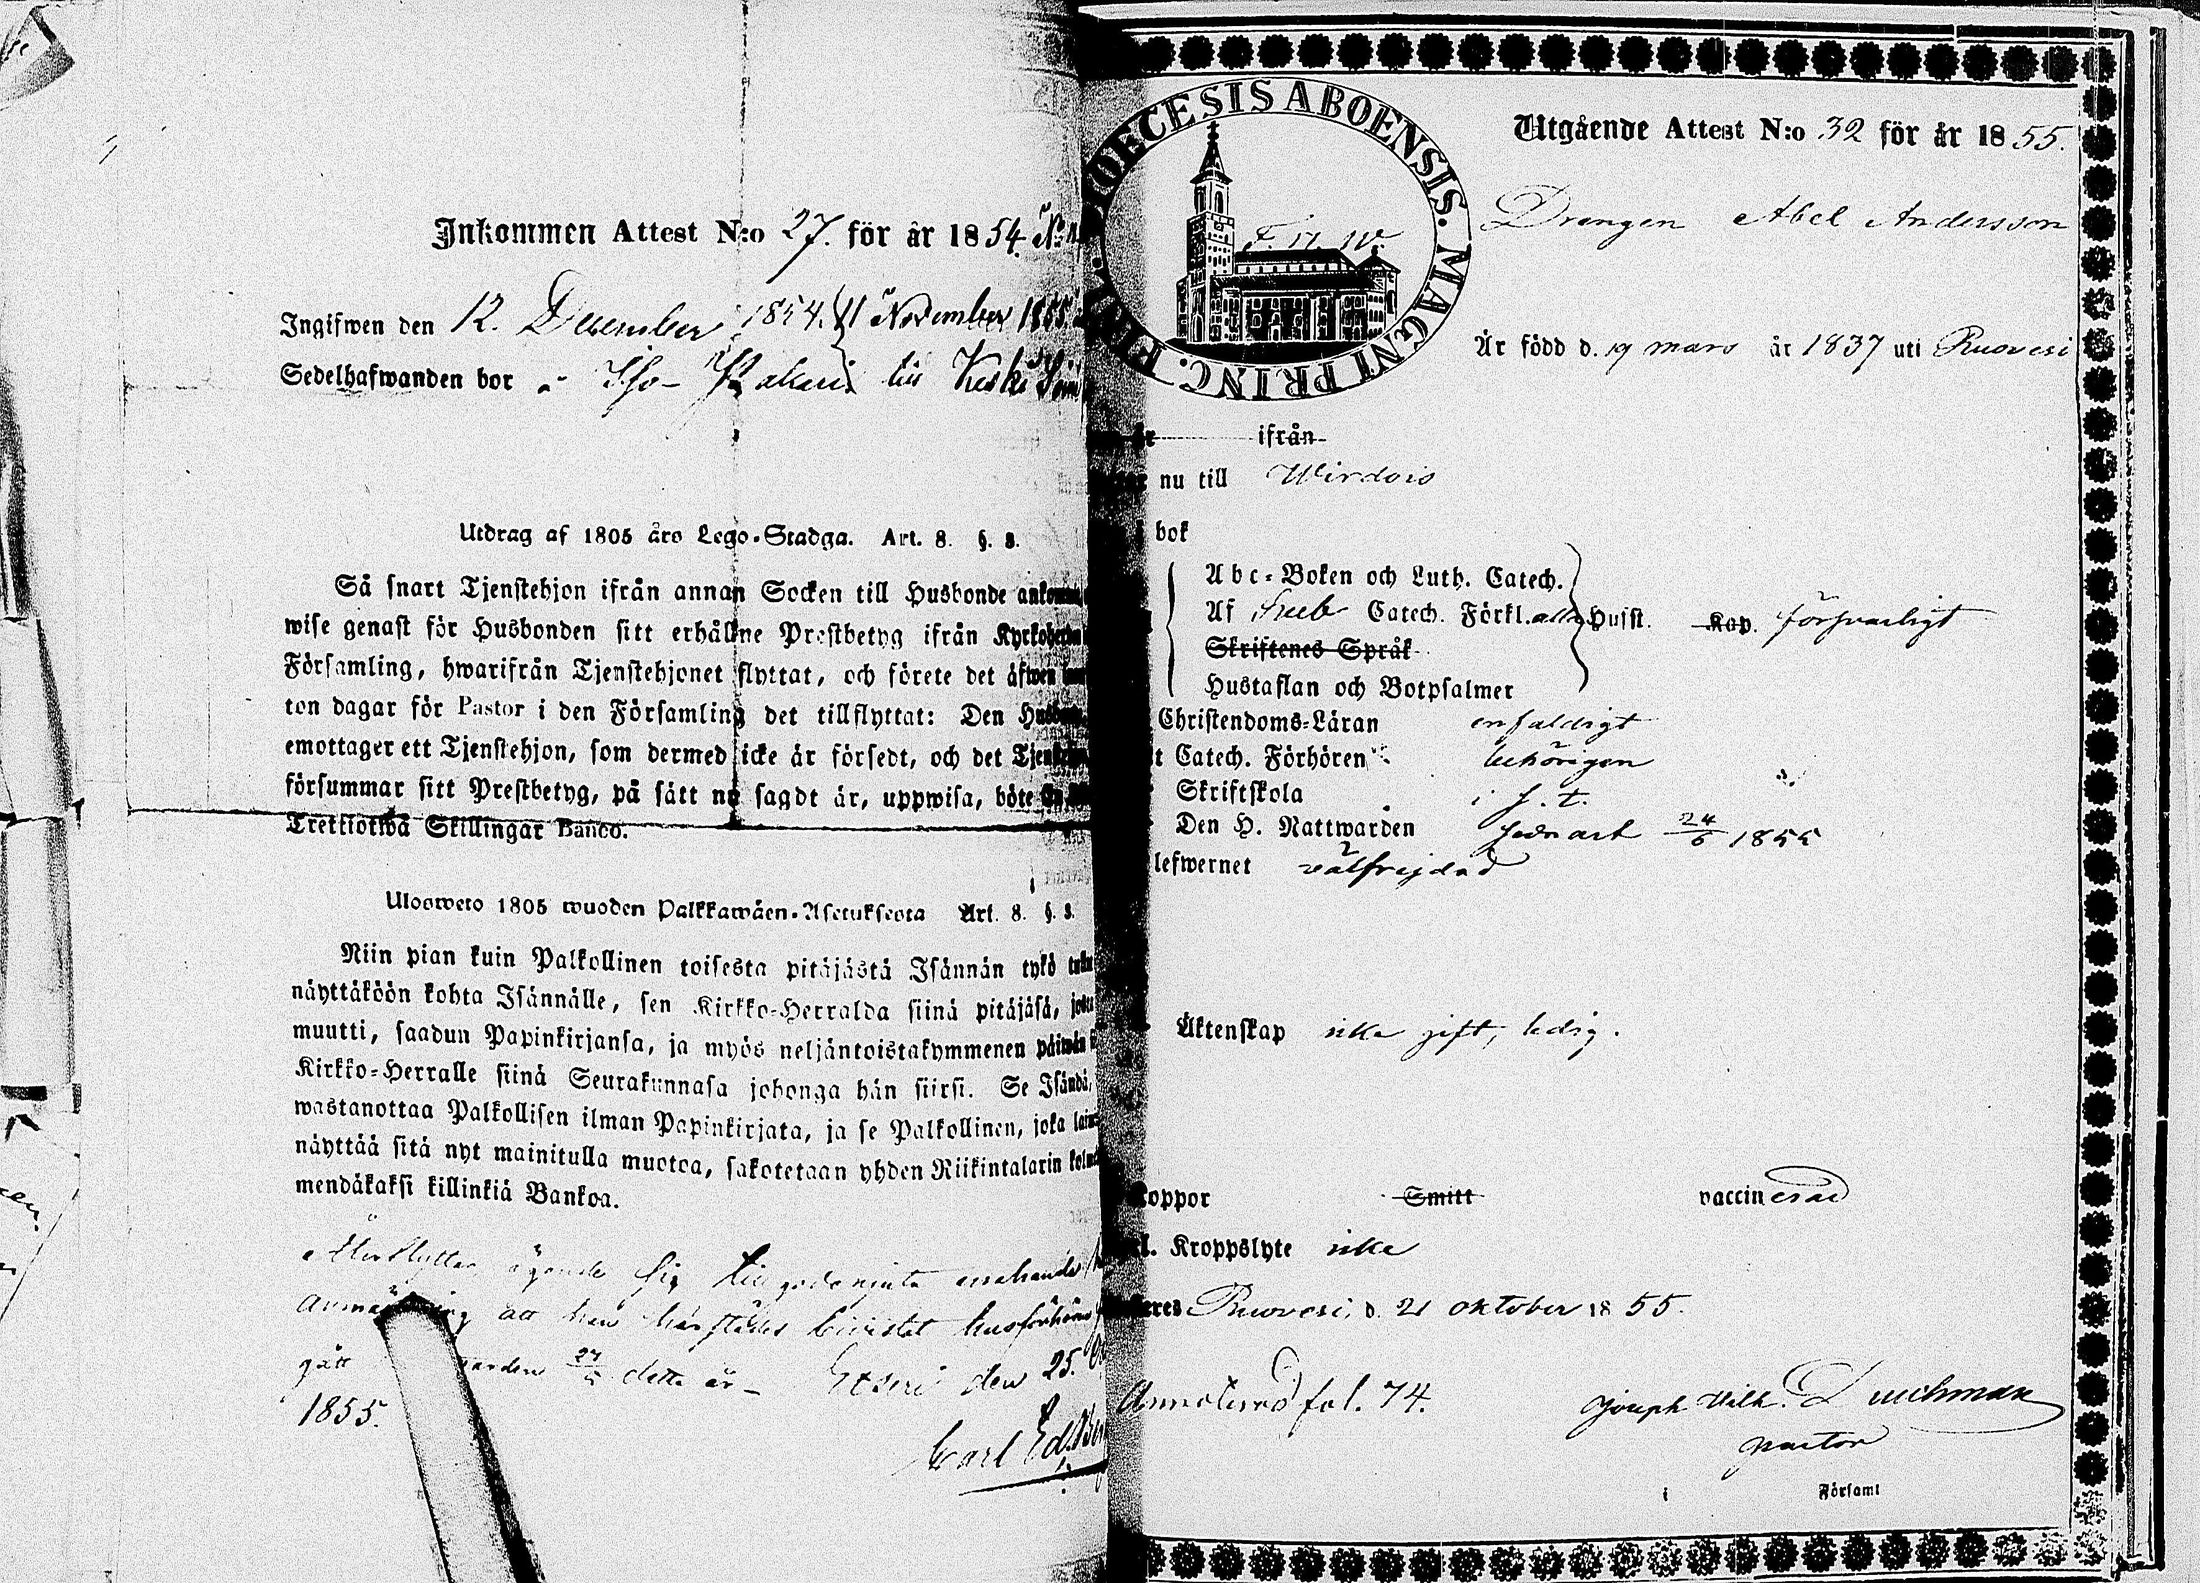 Inkommen Attest N:o 27. för år 1854.
Ingifwen den 12. December 1854. 11 November 1855.
Sedelhafwanden bor Iso- till Keski
Utdrag af 1805 års Lego-Stadga. Art. 8. §. 8.
Så snart Tjenstehjon ifrån annan Socken till Husbonde
wise genast för Husbonden sitt erhållne Prestbetyg ifrån
Församling, hwarifrån Tjenstehjonet flyttat, och förete det äfwen
ton dagar för Pastor i den Församling det tillflyttat: Den
emottager ett Tjenstehjon, som dermed icke är försedt, och det
försummar sitt Prestbetyg, på sätt nu sagdt är, uppwisa, böte
Trettiotwå Skillingar Banco.
Ulosweto 1805 wuoden Palkkawäen-Asetuksesta Art. 8. §. 8.
Niin pian kuin Palkollinen toisesta pitäjästä Isännän tykö
näyttäköön kohta Isännälle, sen Kirkko-Herralda siinä pitäjäsä,
muutti, saadun Papinkirjansa, ja myös neljäntoistakymmenen
Kirkko-Herralle siinä Seurakunnasa johonga hän siirsi. Se Isändä,
wastanottaa Palkollisen ilman Papinkirjata, ja se Palkollinen, joka
näyttää sitä nyt mainitulla muotoa, sakotetaan yhden Riikintalarin
mendäkaksi killinkiä Bankoa.
Återflyttar ägande sig till godo njuta
att han härstädes bivistat
gått detta år - Etseri den 25.
1855.
Carl Ed.
DIOECESIS ABOENSIS. MAGNI PRINC.
Utgående Attest N:o 32 för år 1855.
Drengen Abel Andersson
Är född d. 19 mars år 1837 uti Ruovesi
ifrån
nu till Wirdois
bok
Abc-Boken och Luth. Catech.
Af Sveb Catech. Förkl. alla Husst. Kap. försvarligt
Skriftenes Språk
Hustaflan och Botpsalmer
Christendoms-Läran enfaldigt
Catech. Förhören behörigen
Skriftskola i s. t.
Den H. Nattwarden sednast 24/6 1855
lefwernet välfrejdad
Äktenskap icke gift, ledig.
Koppor Smitt vaccinerad
Kroppslyte icke
Ruovesi, d. 21 oktober 1855.
Annoterad fol. 74.
Joseph Wilh.
pastor
i Församl